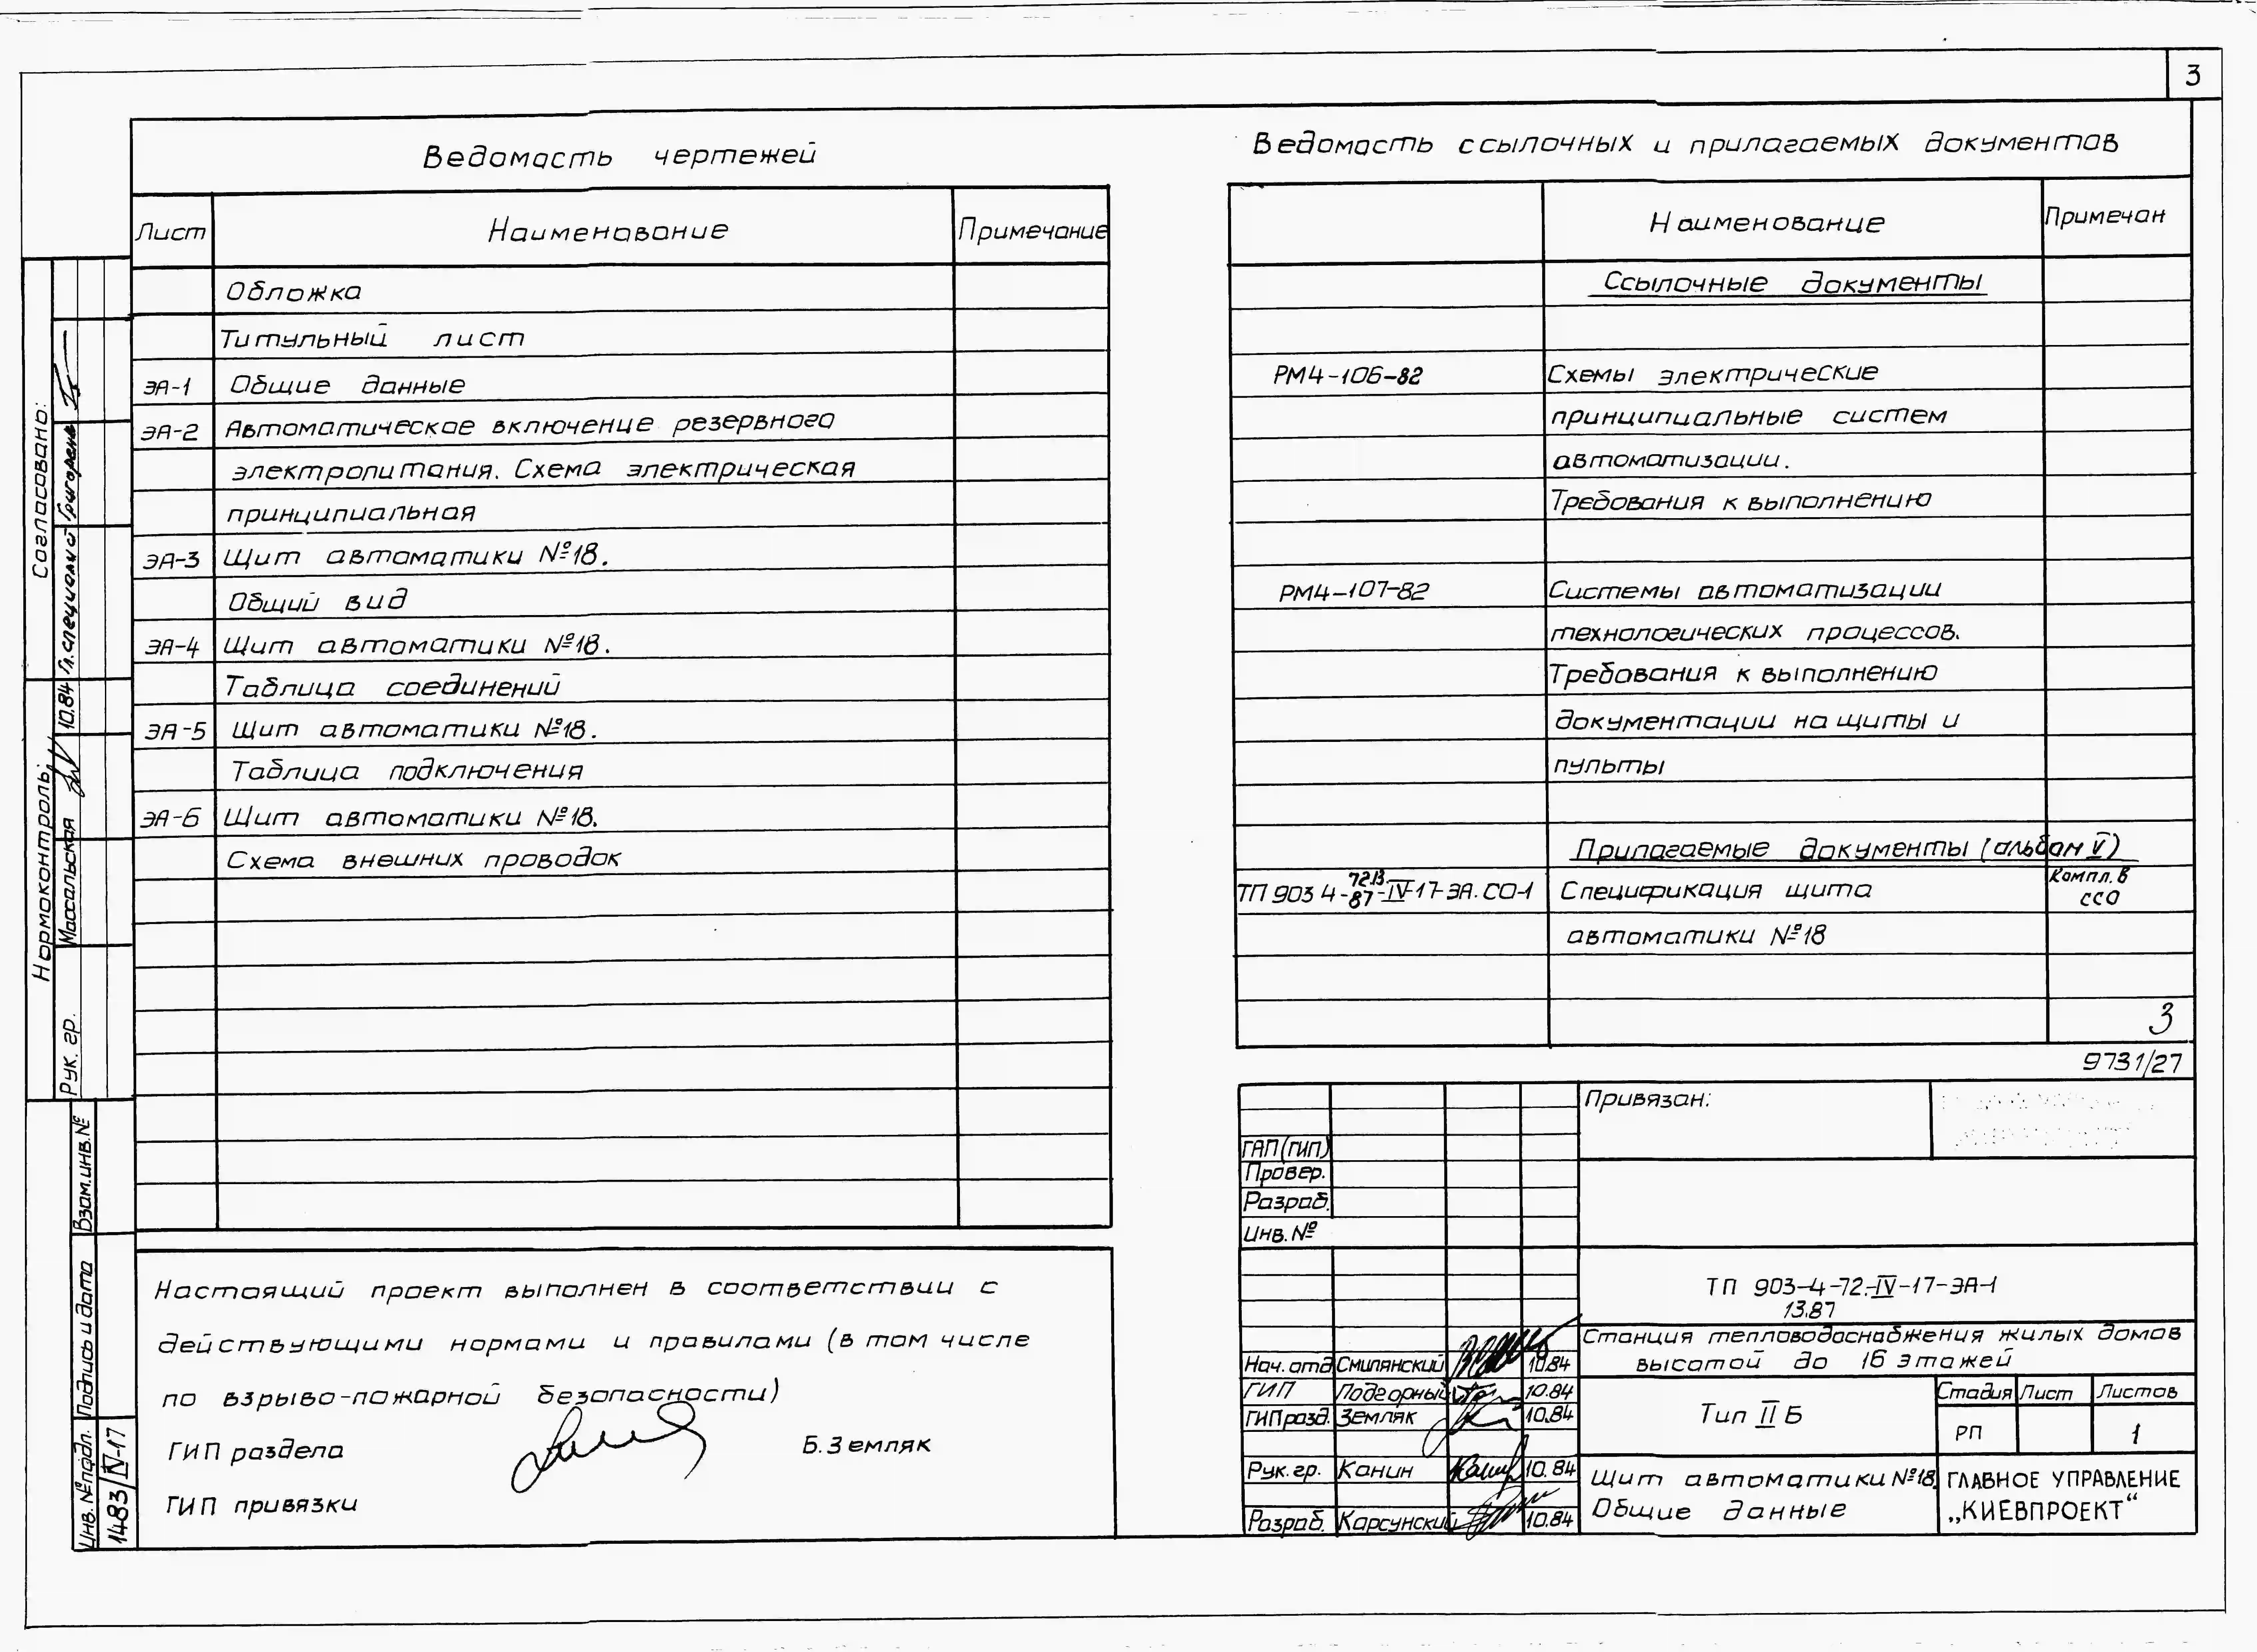 3
Ведомость чертежей
Лист Наименование Примечание
Обложка
Титульный лист
ЭА-1 Общие данные
ЭА-2 Автоматическое включение резервного
электропитания. Схема электрическая
принципиальная
ЭА-3 Щит автоматики №18.
Общий вид
ЭА-4 Щит автоматики №18.
Таблица соединений
ЭА-5 Щит автоматики №18.
Таблица подключения
ЭА-6 Щит автоматики №18.
Схема внешних проводок
Настоящий проект выполнен в соответствии с
действующими нормами и правилами (в том числе
по взрыво-пожарной безопасности)
ГИП раздела Б.Земляк
ГИП привязки
Ведомость ссылочных и прилагаемых документов
Наименование Примечан
Ссылочные документы
РМ4-106-82 Схемы электрические
принципиальные систем
автоматизации.
Требования к выполнению
РМ4-107-82 Системы автоматизации
технологических процессов.
Требования к выполнению
документации на щиты и
пульты
Прилагаемые документы (альбом V)
ТП 903 4-72.13.87-IV-17-ЭА.СО-1 Спецификация щита Компл. в ССО
автоматики №18
3
9731/27
Привязан:
ГАП(ГИП)
Провер.
Разраб.
Инв.№
ТП 903-4-72.-IV-17-ЭА-1
13.87
Станция тепловодоснабжения жилых домов
высотой до 16 этажей
Нач.отд Смилянский 10.84
ГИП Подгорный 10.84
ГИПразд. Земляк 10.84
Рук.гр. Канин 10.84
Разраб. Карсунский 10.84
Тип II Б
Стадия Лист Листов
РП 1
Щит автоматики №18.
Общие данные
ГЛАВНОЕ УПРАВЛЕНИЕ
„КИЕВПРОЕКТ“
Согласовано:
Гл.специалист Григорена
Нормоконтроль:
Рук. гр. Массальская 10.84
Взам.инв.№
Подпись и дата
Инв.№подл.
1483/IV-17